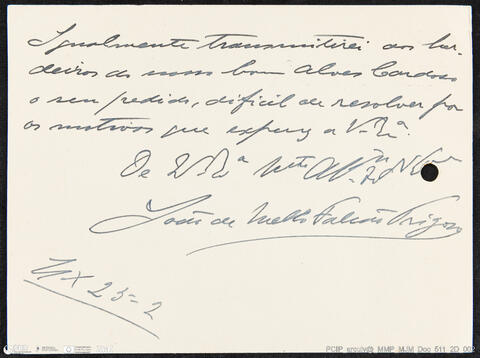 Igualmente transmitirei aos her-
deiros do nosso bom Alves Cardoso
o seu pedido, difficil de resolver por
os motivos que expuz a V. Exª.
De V. Exª
João de Mello Falcão Trigoso
25-2
PCIP arquivo MMP MJM Doc 511 2D 002